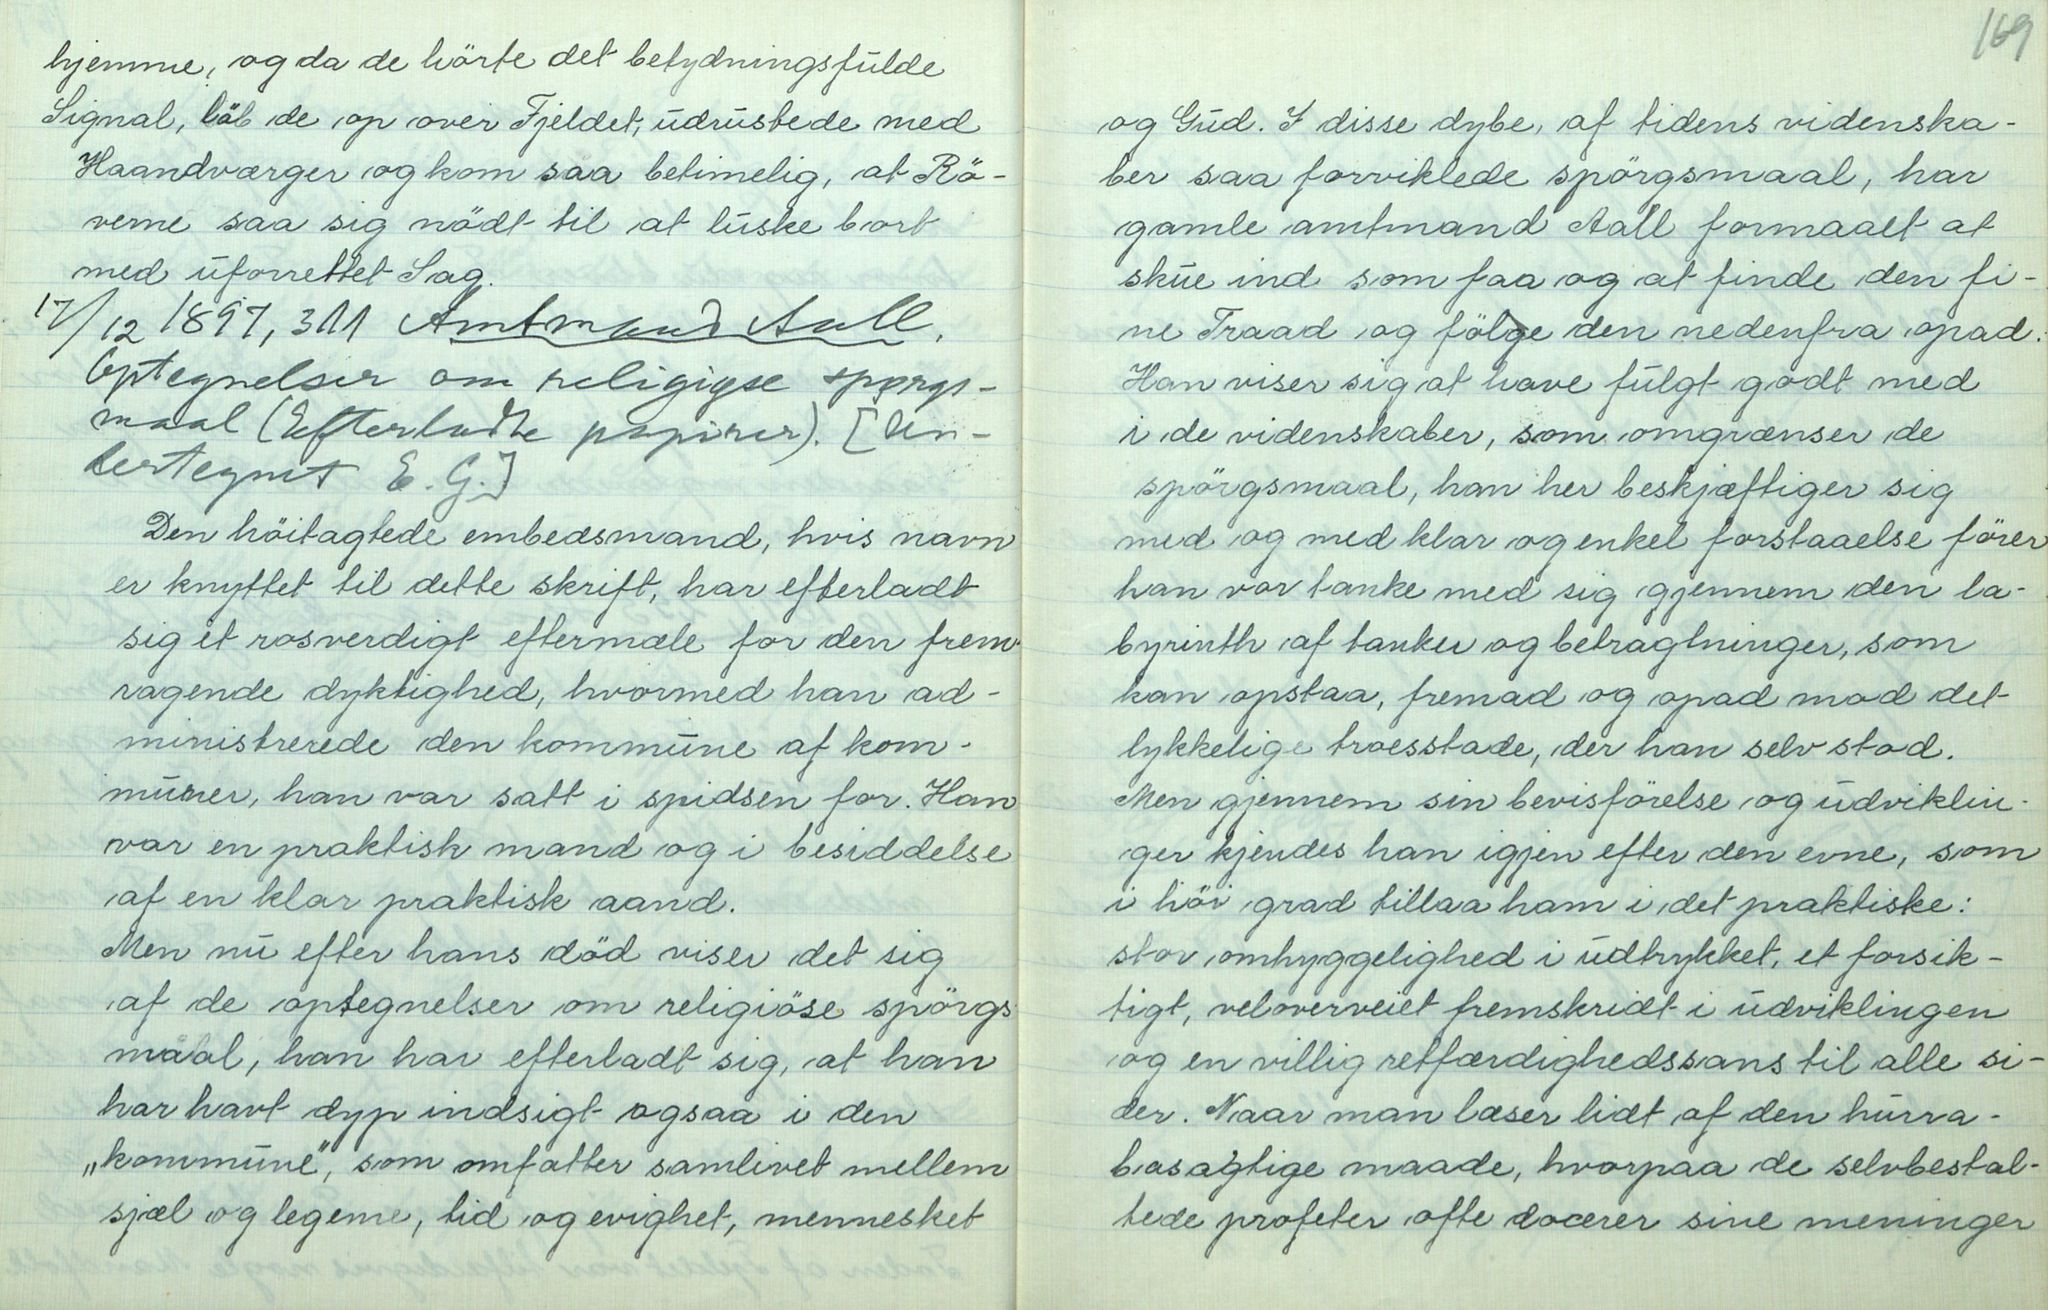 hjemme, og da de hörte det betydningsfulde
Signal, löb de op over Fjeldet, udrustede med
Haandværger og kom saa betimelig, at Rö-
verne saa sig nödt til at luske bort
med uforrettet Sag.
17/12 1897, 311 Amtmand Aall.
Optegnelser om religiøse spørgs-
maal (Efterladte papirer). [Un-
dertegnet E. G.]
Den höitagtede embedsmand, hvis navn
er knyttet til dette skrift, har efterladt
sig et rosverdigt eftermæle for den frem-
ragende dyktighed, hvormed han ad-
ministrerede den kommune af kom-
muner, han var satt i spidsen for. Han
var en praktisk mand og i besiddelse
af en klar praktisk aand.
Men nu efter hans död viser det sig
af de optegnelser om religiöse spörgs
maal, han har efterladt sig, at han
har havt dyp indsigt ogsaa i den
„kommune", som omfatter samlivet mellem
sjæl og legeme, tid og evighet, mennesket
169
og Gud. I disse dybe, af tidens videnska-
ber saa forviklede spörgsmaal, har
gamle amtmand Aall formaalt at
skue ind som faa og at finde den fi-
ne Traad og fölge den nedenfra opad.
Han viser sig at have fulgt godt med
i de videnskaber, som omgrænser de
spörgsmaal, han her beskjæftiger sig
med og med klar og enkel forstaaelse förer
han vor tanke med sig gjennem den la-
byrinth af tanker og betragtninger, som
kan opstaa, fremad og opad mod det
lykkelige troesstade, der han selv stod.
Men gjennem sin bevisförelse og udviklin-
ger kjendes han igjen efter den evne, som
i höi grad tillaa ham i det praktiske:
stor omhyggelighed i udtrykket, et forsik-
tigt, veloverveiet fremskridt i udviklingen
og en villig retfærdighedssans til alle si-
der. Naar man læser lidt af den hurra-
basagtige maade, hvorpaa de selvbestal-
tede profeter ofte docerer sine meninger